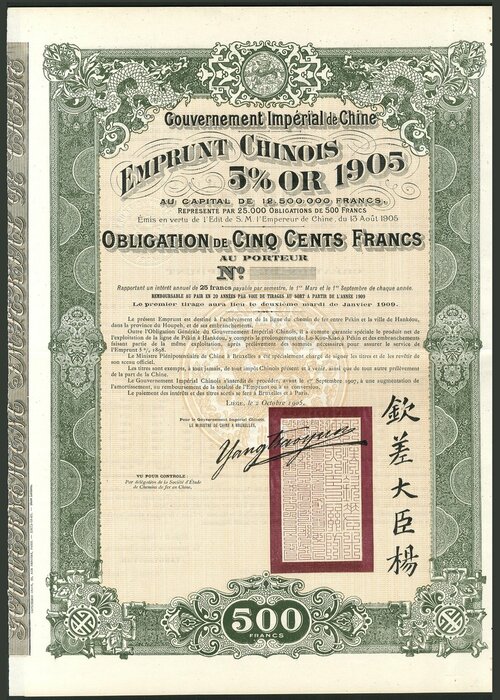 Gouvernement Impérial de Chine
EMPRUNT CHINOIS
5% OR 1905
AU CAPITAL DE 12.500.000 FRANCS,
REPRÉSENTÉ PAR 25.000 OBLIGATIONS DE 500 FRANCS
Émis en vertu de l'Edit de S. M. l'Empereur de Chine, du 13 Août 1905
OBLIGATION DE CINQ CENTS FRANCS
AU PORTEUR
No
Rapportant un intérêt annuel de 25 francs payable par semestre, le 1er Mars et le 1er Septembre de chaque année.
REMBOURSABLE AU PAIR EN 20 ANNÉES PAR VOIE DE TIRAGES AU SORT A PARTIR DE L'ANNÉE 1909
Le premier tirage aura lieu le deuxième mardi de Janvier 1909.
Le présent Emprunt est destiné à l'achèvement de la ligne du chemin de fer entre Pékin et la ville de Hankéou,
dans la province du Houpeh, et de ses embranchements.
Outre l'Obligation Générale du Gouvernement Impérial Chinois, il a comme garantie spéciale le produit net de
l'exploitation de la ligne de Pékin à Hankéou, y compris le prolongement de Lou-Kou-Kiao à Pékin et embranchements
faisant partie de la même exploitation, après prélèvement des sommes nécessaires pour assurer le service de
l'Emprunt 5 % 1898.
Le Ministre Plénipotentiaire de Chine à Bruxelles a été spécialement chargé de signer les titres et de les revêtir de
son sceau officiel.
Les titres sont exempts, à tout jamais, de tous impôts Chinois présents et à venir, ainsi que de tout autre prélèvement
de la part de la Chine.
Le Gouvernement Impérial Chinois s'interdit de procéder, avant le 1er Septembre 1907, à une augmentation de
l'amortissement, au remboursement de la totalité de l'Emprunt ou à sa conversion.
Le paiement des intérêts et des titres sortis se fera à Bruxelles et à Paris.
LIÉGE, le 2 Octobre 1905.
Pour le Gouvernement Impérial Chinois,
LE MINISTRE DE CHINE A BRUXELLES,
VU POUR CONTROLE :
Par délégation de la Société d'Étude
de Chemins de fer en Chine,
欽差大臣楊
500
FRANCS